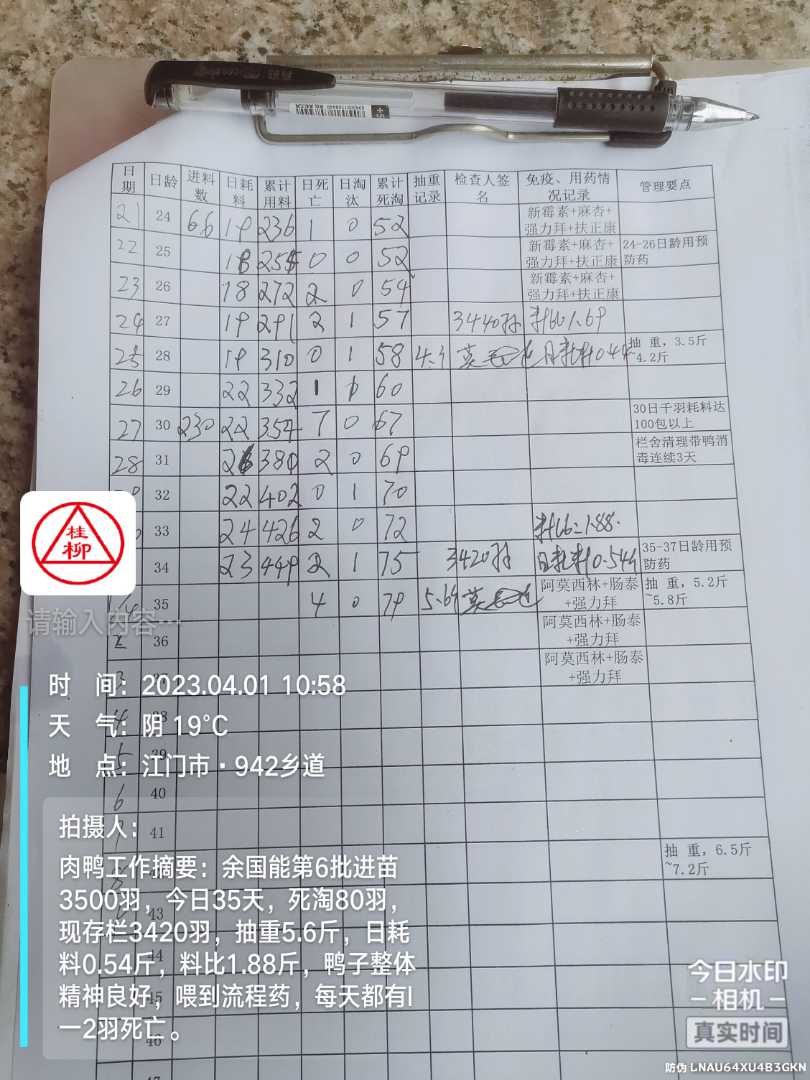 日期 日龄 进料数 日耗料 累计用料 日死亡 日淘汰 累计死淘 抽重记录 检查人签名 免疫、用药情况记录 管理要点
21 24 66 19 236 1 0 52 新霉素+麻杏+强力拜+扶正康
22 25 18 254 0 0 52 新霉素+麻杏+强力拜+扶正康 24-26日龄用预防药
23 26 18 272 2 0 54 新霉素+麻杏+强力拜+扶正康
24 27 19 291 2 1 57 3440羽 料比1.69
25 28 19 310 0 1 58 日耗料0.44 抽 重，3.5斤~4.2斤
26 29 22 332 1 1 60
27 30 230 22 354 7 0 67 30日千羽耗料达100包以上
28 31 26 380 2 0 69 栏舍清理带鸭消毒连续3天
32 22 402 0 1 70
33 24 426 2 0 72 料比=1.88.
34 23 449 2 1 75 3420羽 日耗料0.54斤 35-37日龄用预防药
35 4 0 79 5.6斤 阿莫西林+肠泰+强力拜 抽 重，5.2斤~5.8斤
2 36 阿莫西林+肠泰+强力拜
3 阿莫西林+肠泰+强力拜
4 38
5 39
6 40
41
抽 重，6.5斤~7.2斤
43
44
45
46
47
桂柳
请输入内容…
时 间：2023.04.01 10:58
天 气：阴 19℃
地 点：江门市·942乡道
拍摄人：
肉鸭工作摘要：余国能第6批进苗
3500羽，今日35天，死淘80羽，
现存栏3420羽，抽重5.6斤，日耗
料0.54斤，料比1.88斤，鸭子整体
精神良好，喂到流程药，每天都有l
一2羽死亡。
今日水印
相机
真实时间
防伪 LNAU64XU4B3GKN